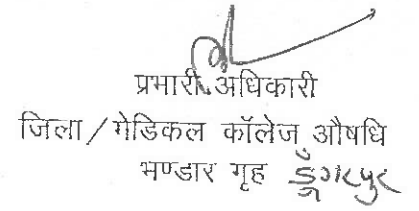 प्रभारी अधिकारी
जिला/मेडिकल कॉलेज औषधि
भण्डार गृह डूँगरपुर